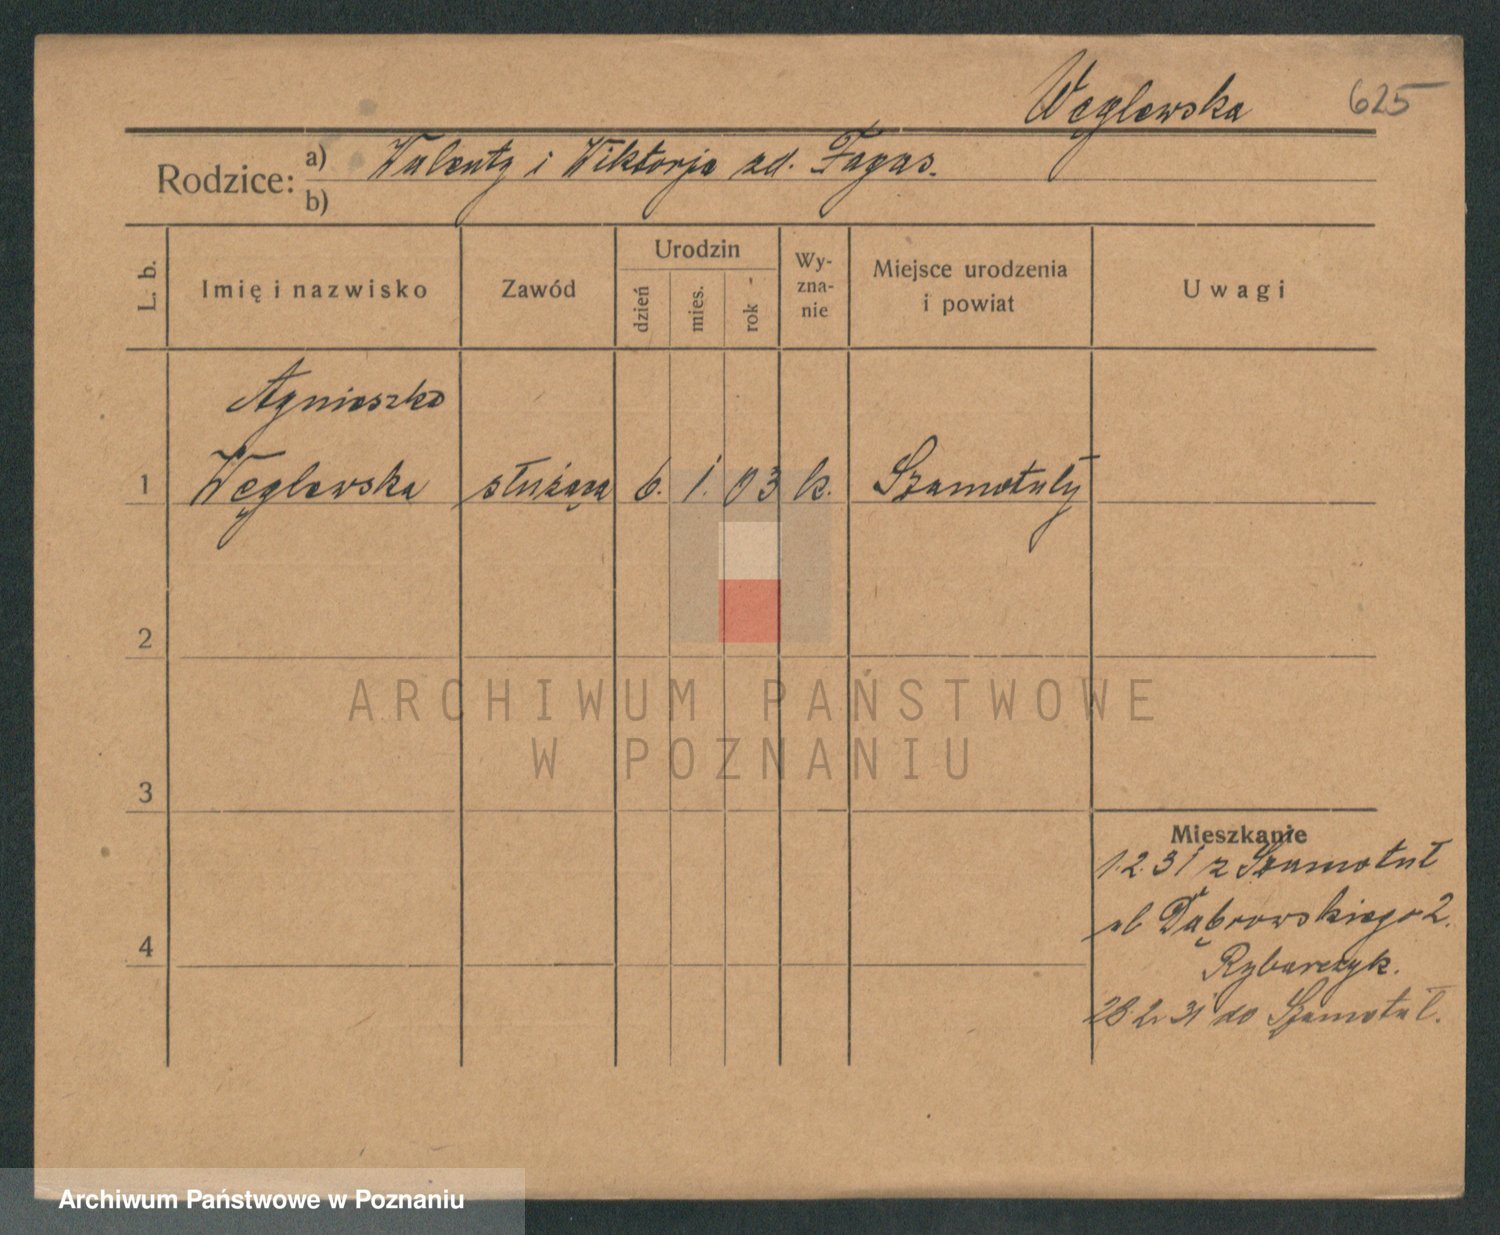 Węglewska 625
Rodzice: a) Walenty i Wiktorja zd. Fagas.
b)
L. b. Imię i nazwisko Zawód Urodzin dzień mies. rok Wy-zna-nie Miejsce urodzenia i powiat Uwagi
Agnieszka
1 Węglewska służąca 6. 1. 03 k. Szamotuły
2
ARCHIWUM PAŃSTWOWE
W POZNANIU
3
Mieszkanie
1.2.31 z Szamotuł
ul Dąbrowskiego 2.
4
Rybarczyk.
28.2.31 do Szamotuł.
Archiwum Państwowe w Poznaniu